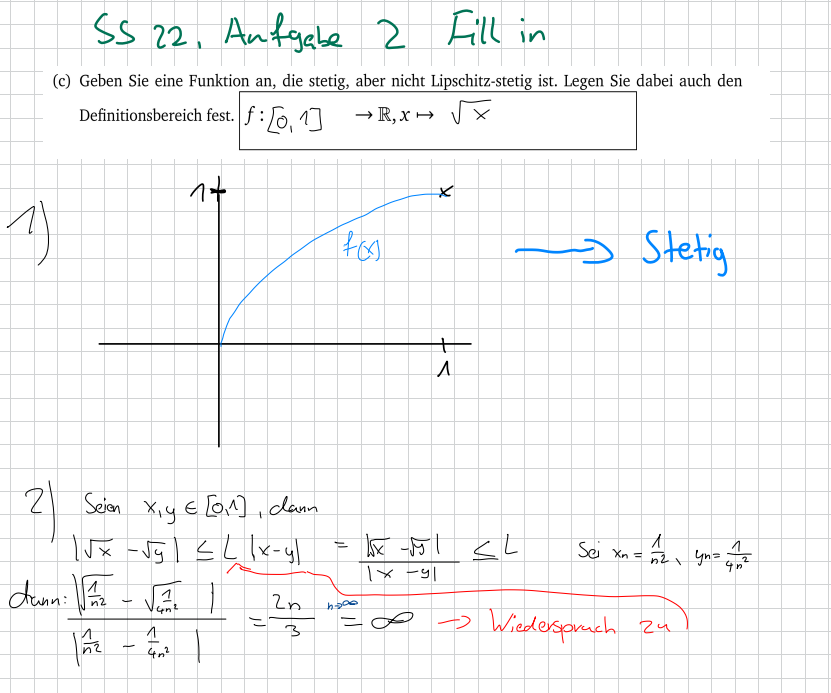 SS 22, Aufgabe 2 Fill in
(c) Geben Sie eine Funktion an, die stetig, aber nicht Lipschitz-stetig ist. Legen Sie dabei auch den
Definitionsbereich fest. f : [0,1] → ℝ, x ↦ √x
1)
1
f(x)
→ Stetig
1
2) Seien x,y ∈ [0,1], dann
|√x - √y| ≤ L |x-y| = |√x - √y| / |x - y| ≤ L Sei xn = 1/n², yn = 1/4n²
dann: |√(1/n²) - √(1/4n²)| / |1/n² - 1/4n²| = 2n/3 n→∞ = ∞ → Wiederspruch zu